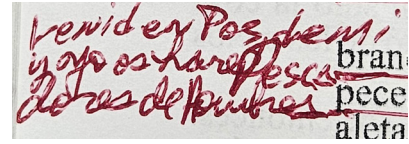 venid en Pos de mi
y yo os hare Pesca
dores de Hombres
bran
pece
aleta